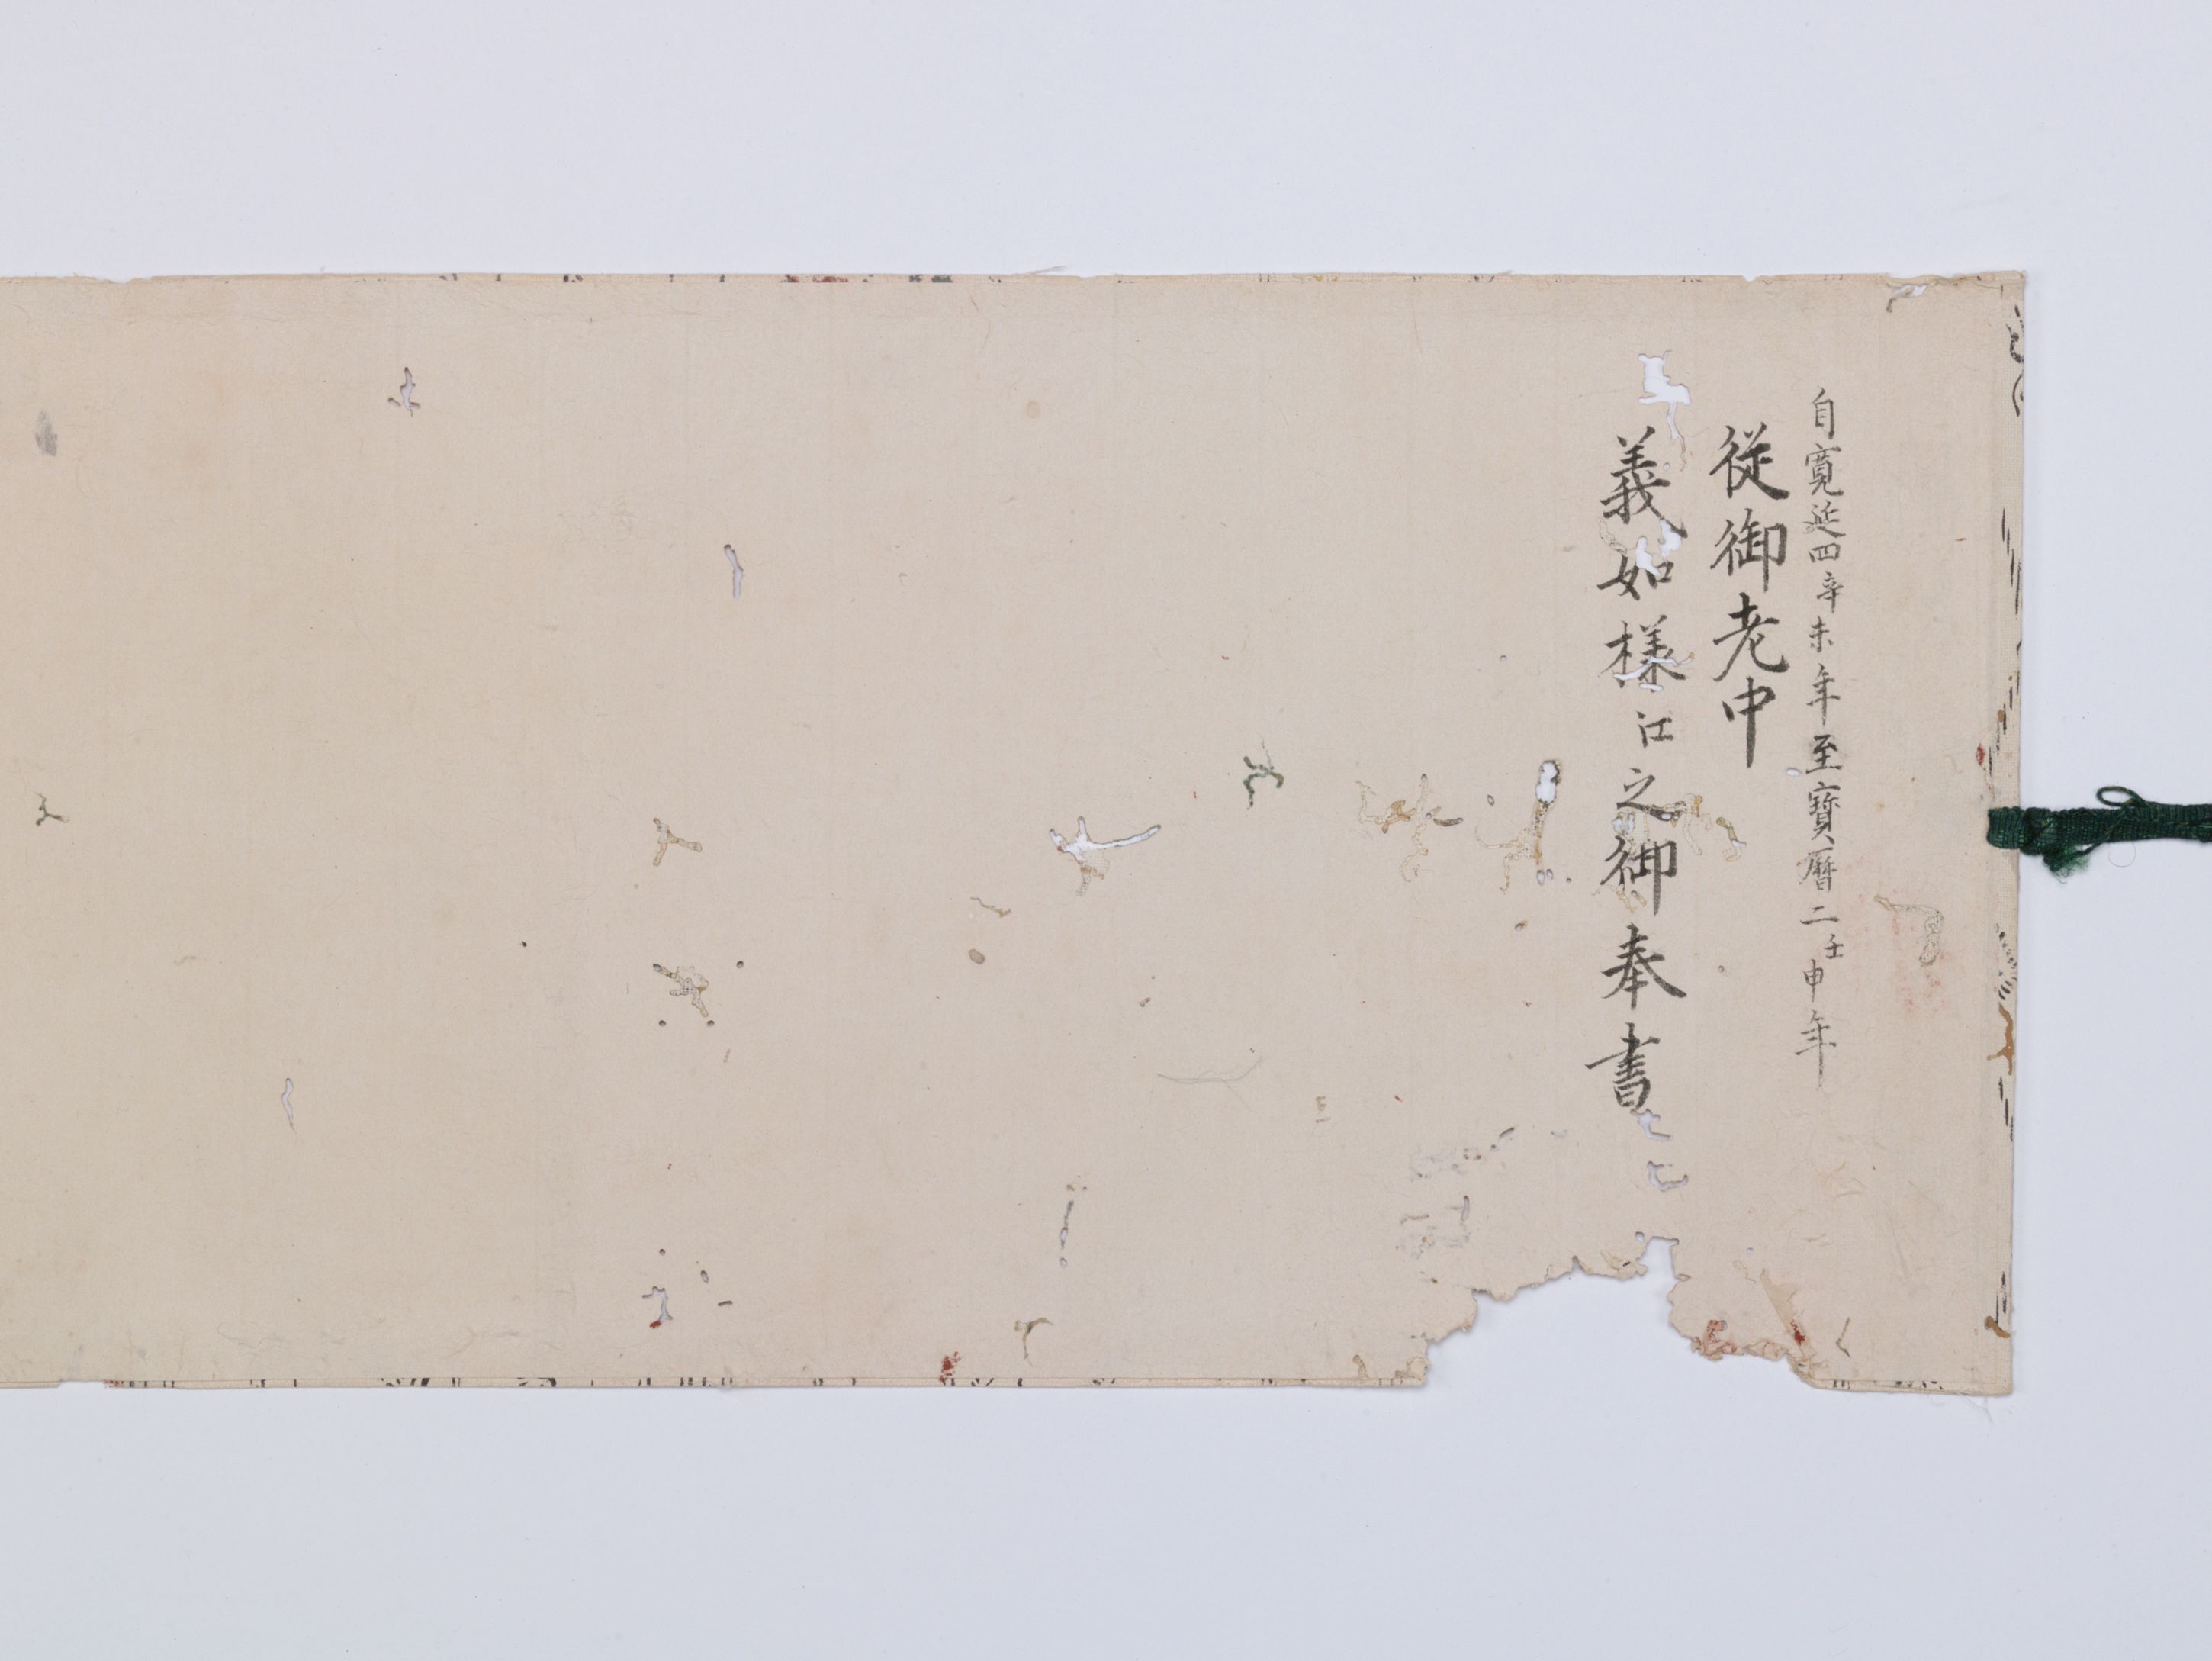 自寛延四辛未年至寳暦二壬申年
従御老中
義如様江之御奉書